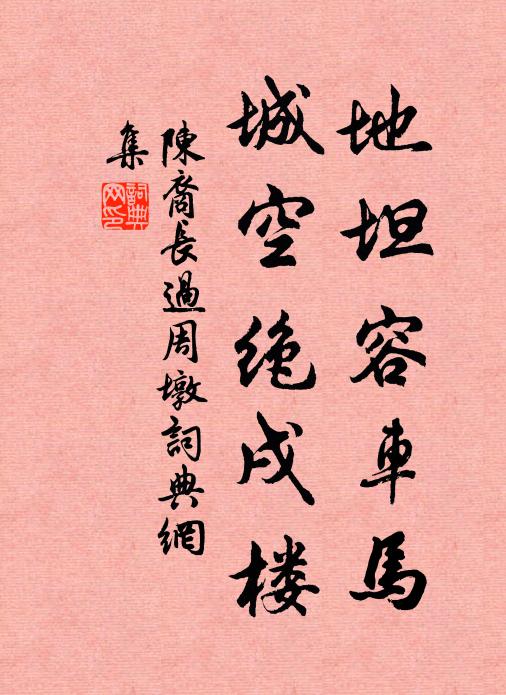 地坦容車馬
城空絶戍楼
陳裔長過周墩詞典網
集
詞典网印